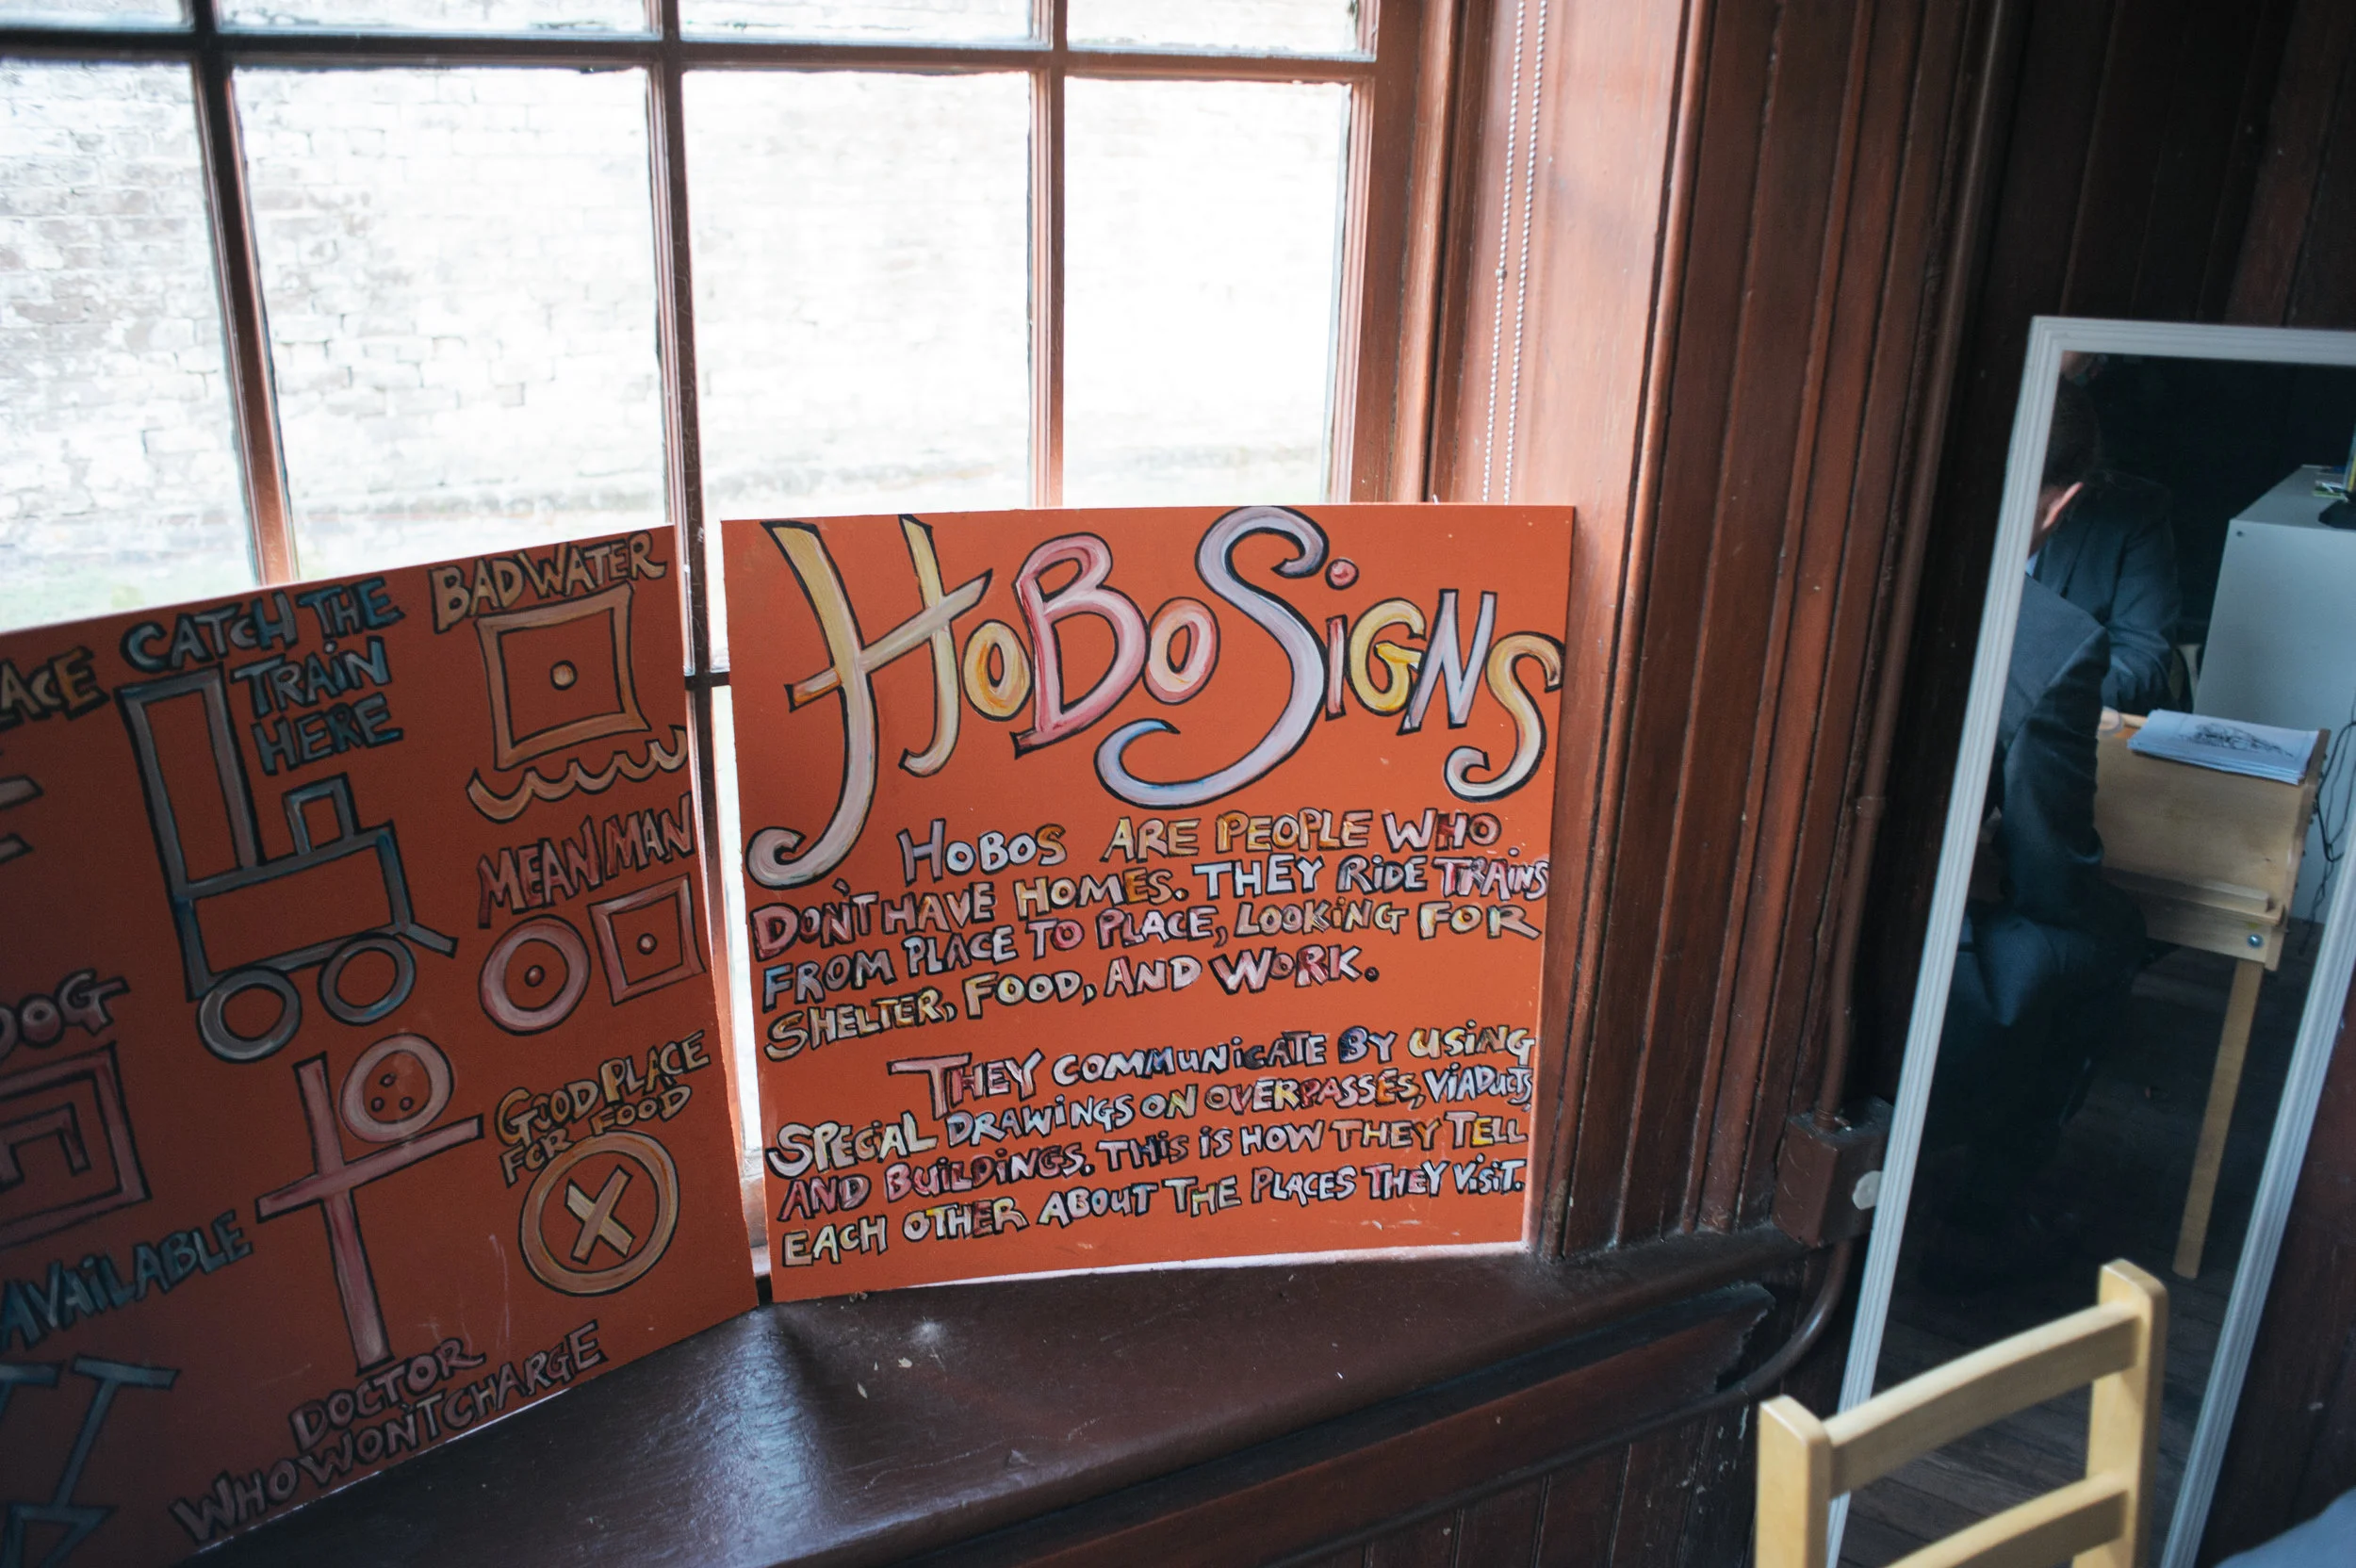 CATCH THE
TRAIN
HERE
BAD WATER
MEAN MAN
DOG
GOOD PLACE
FOR FOOD
AVAILABLE
DOCTOR
WHO WON'T CHARGE
HOBO SIGNS
HOBOS ARE PEOPLE WHO
DON'T HAVE HOMES. THEY RIDE TRAINS
FROM PLACE TO PLACE, LOOKING FOR
SHELTER, FOOD, AND WORK.
THEY COMMUNICATE BY USING
SPECIAL DRAWINGS ON OVERPASSES, VIADUCTS,
AND BUILDINGS. THIS IS HOW THEY TELL
EACH OTHER ABOUT THE PLACES THEY VISIT.